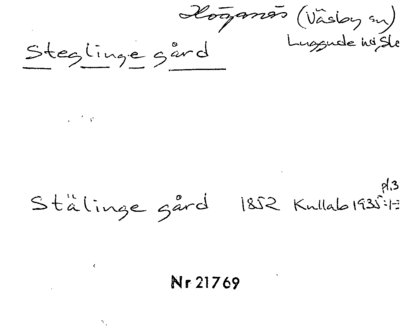 Höganäs (Väsby sn)
Luggude hd, Sk
Steglinge gård
pl. 3
Stälinge gård 1852 Kullab 1935:1-
Nr 21769